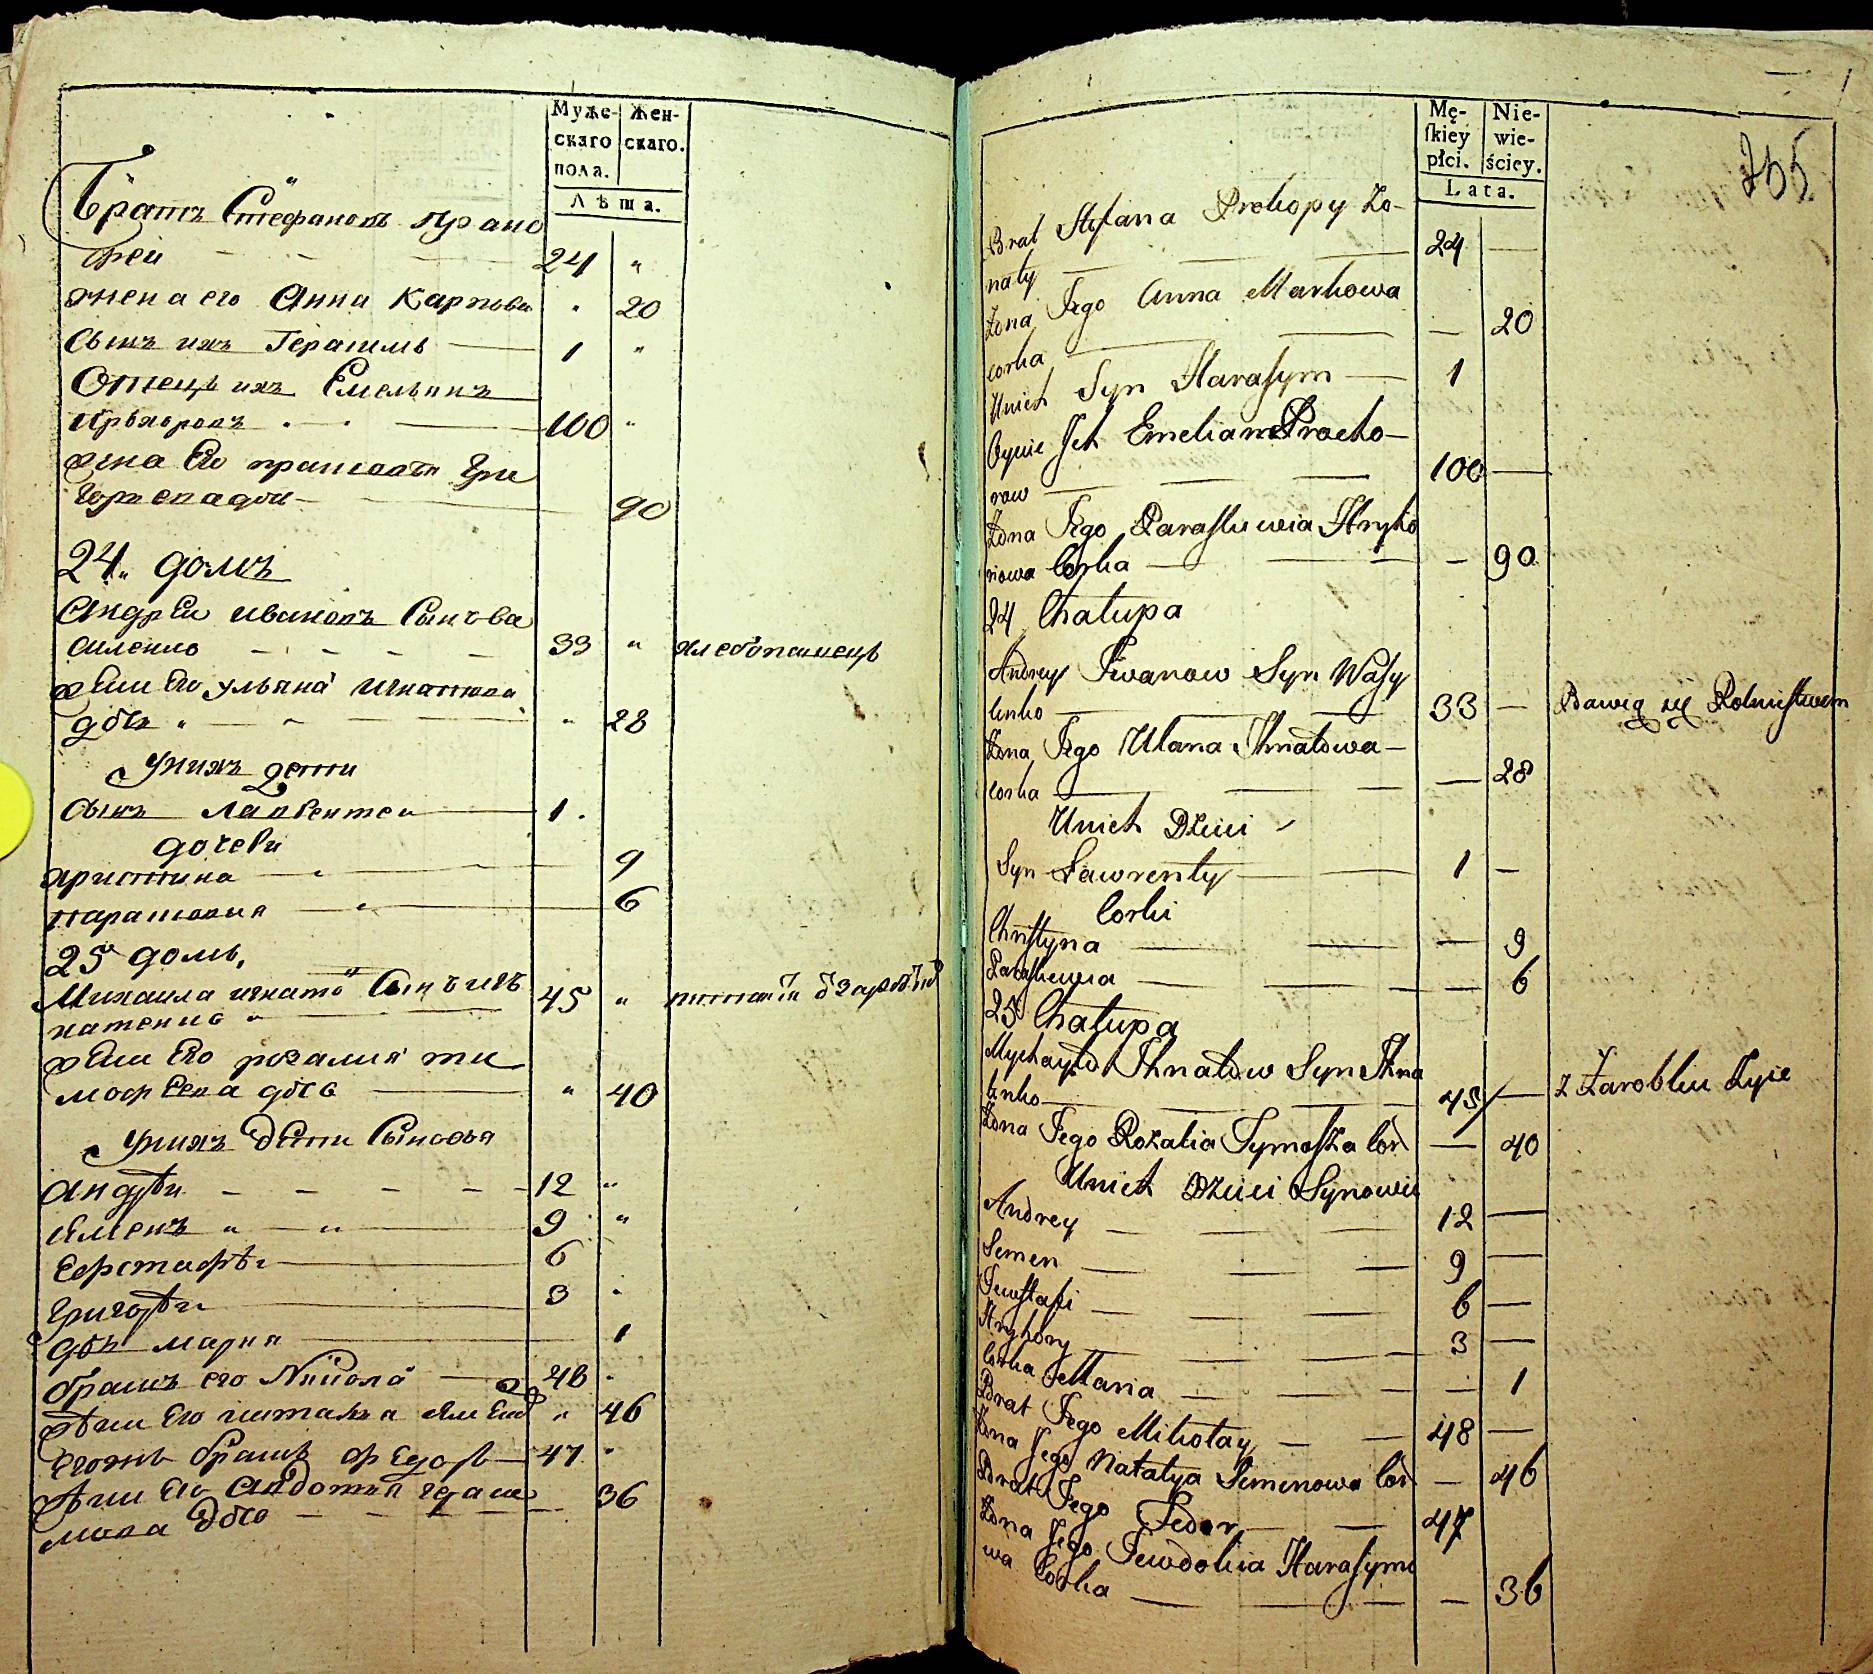 Муже- Жен-
скаго скаго.
пола.
Лѣта.
Братъ Стефановъ
24 "
жена его Анна Карпова " 20
Сынъ ихъ Герасимъ 1 "
Отецъ ихъ Емельянъ
Прохоровъ 100 "
90
24. домъ
Андрей Ивановъ Сынъ Ва
силенко 33 " хлебопашецъ
Его Ульяна Игнатова
" 28
У нихъ дети
Сынъ Лаврентей 1
дочери
Христина 9
Парасковия 6
25 домъ
Михаила Игнато Сынъ Иг
натенко 45 "
Его розалия ти
мофеева " 40
У нихъ Дети Сыновья
Андрѣй 12 "
Семенъ " " 9 "
Евстафѣй 6
Григорѣй 3 "
Мария 1
братъ его Никола 48 "
Его " 46
братъ Федоръ 47 "
Его Авдотия гераси
мова 36
Mę- Nie-
ſkiey wie-
płci. ściey.
Lata.
255
Brat Stefana Prokopy Żo-
naty 24 —
Żona Jego Anna Markowa
corka — 20
Unich Syn Harasym 1
Oyciec Jch Emelian Procho-
row 100 —
Żona Jego Paraskuwia Hryho
riowa Corka — 90
24 Chałupa
Andrey Jwanow Syn Wasy
lenko 33 — Bawią się Rolnistwem
Żona Jego Ulana Jhnatowa
corka — 28
Unich Dzieci
Syn Ławrenty 1 —
Corki
Chrystyna — 9
Paraskewia — 6
25 Chałupa
Mychayło Jhnatow Syn Jhna
tenko 45 — z Zarobku Żyie
Żona Jego Rozalia Tymofka Cor — 40
Unich Dzieci Synowie
Andrey 12 —
Semen 9 —
Jewstafi 6 —
Hryhory 3 —
Corka Maria — 1
Brat Jego Mikołay 48 —
Żona Jego Natalya Semenowa Cor — 46
Brat Jego Fedor 47
Żona Jego Jewdokia Harasymo
wa Corka — 36